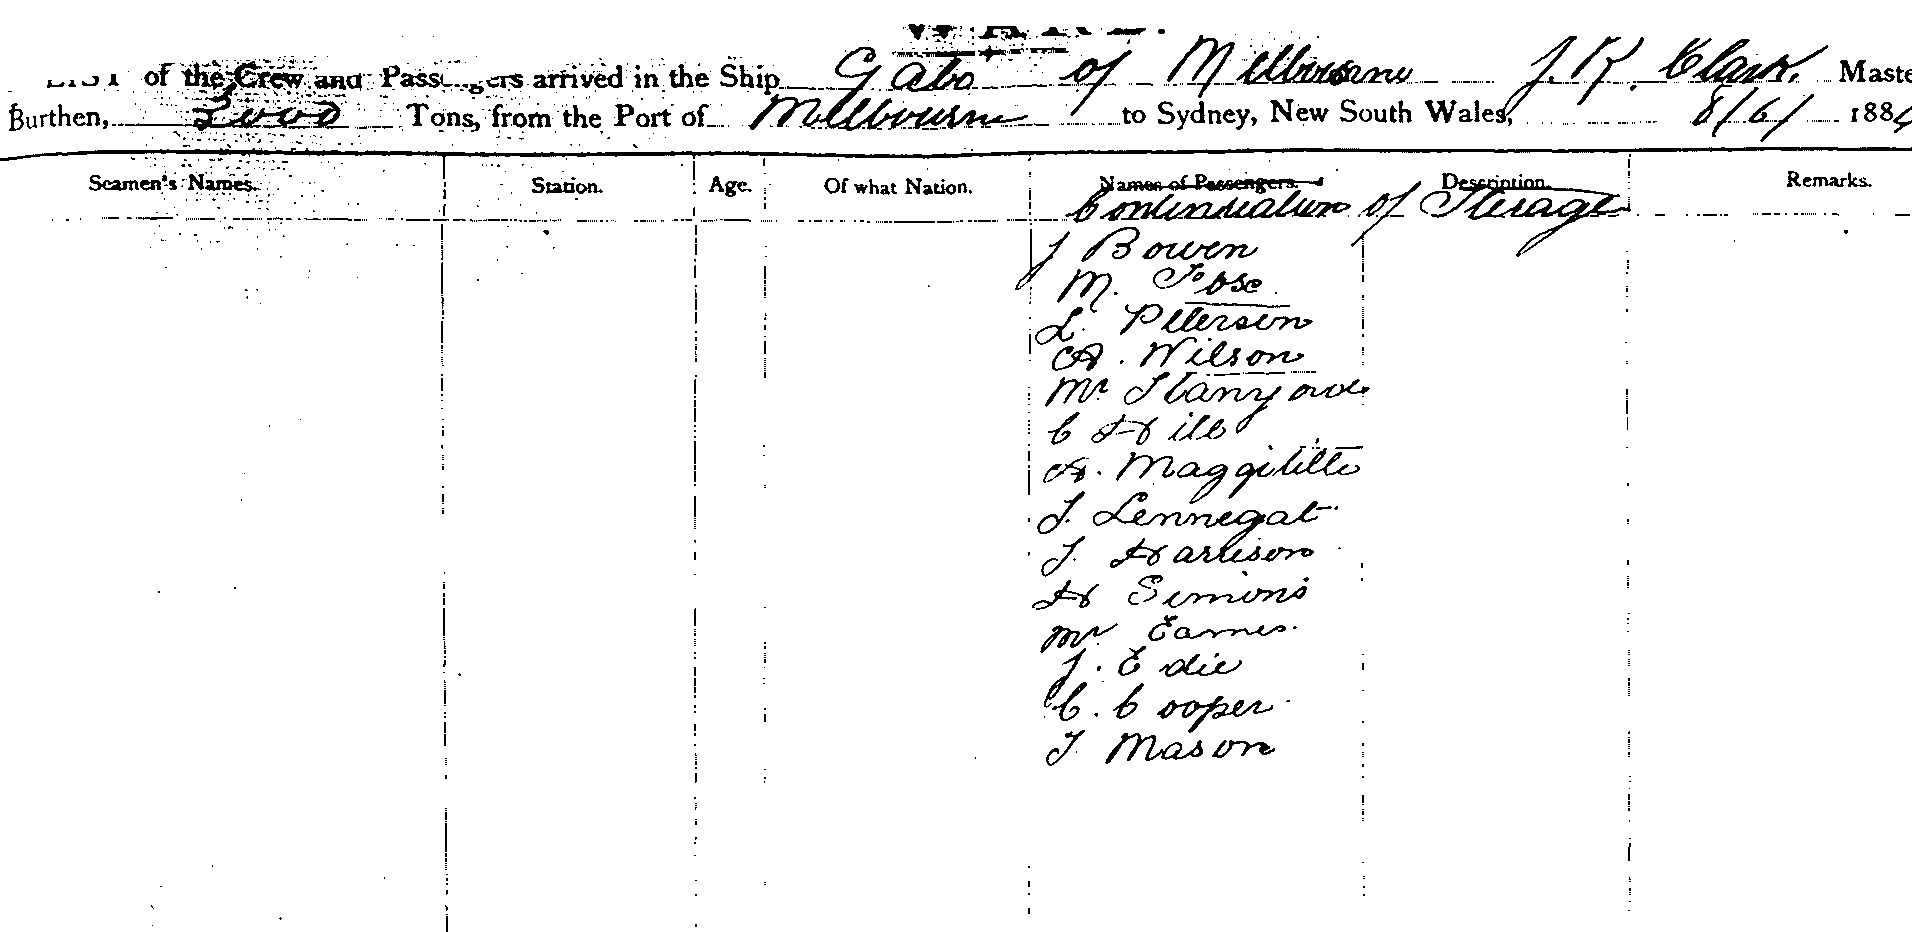 LIST of the Crew and Passengers arrived in the Ship Gabo of Melbourne J. K. Clark. Maste
Burthen, 2000 Tons, from the Port of Melbourne to Sydney, New South Wales, 8/6/ 1884
Seamen's Names. Station. Age. Of what Nation. Names of Passengers. Description. Remarks.
Continuation of Sterage
J Bowen
M.
L. Petersen
A. Wilson
Mr Stanyord
C Hill
A. Maggilitte
J. Lennegat
J. Harrison
H Simons
Mr Eames.
J. Edie
C. Cooper
J Mason